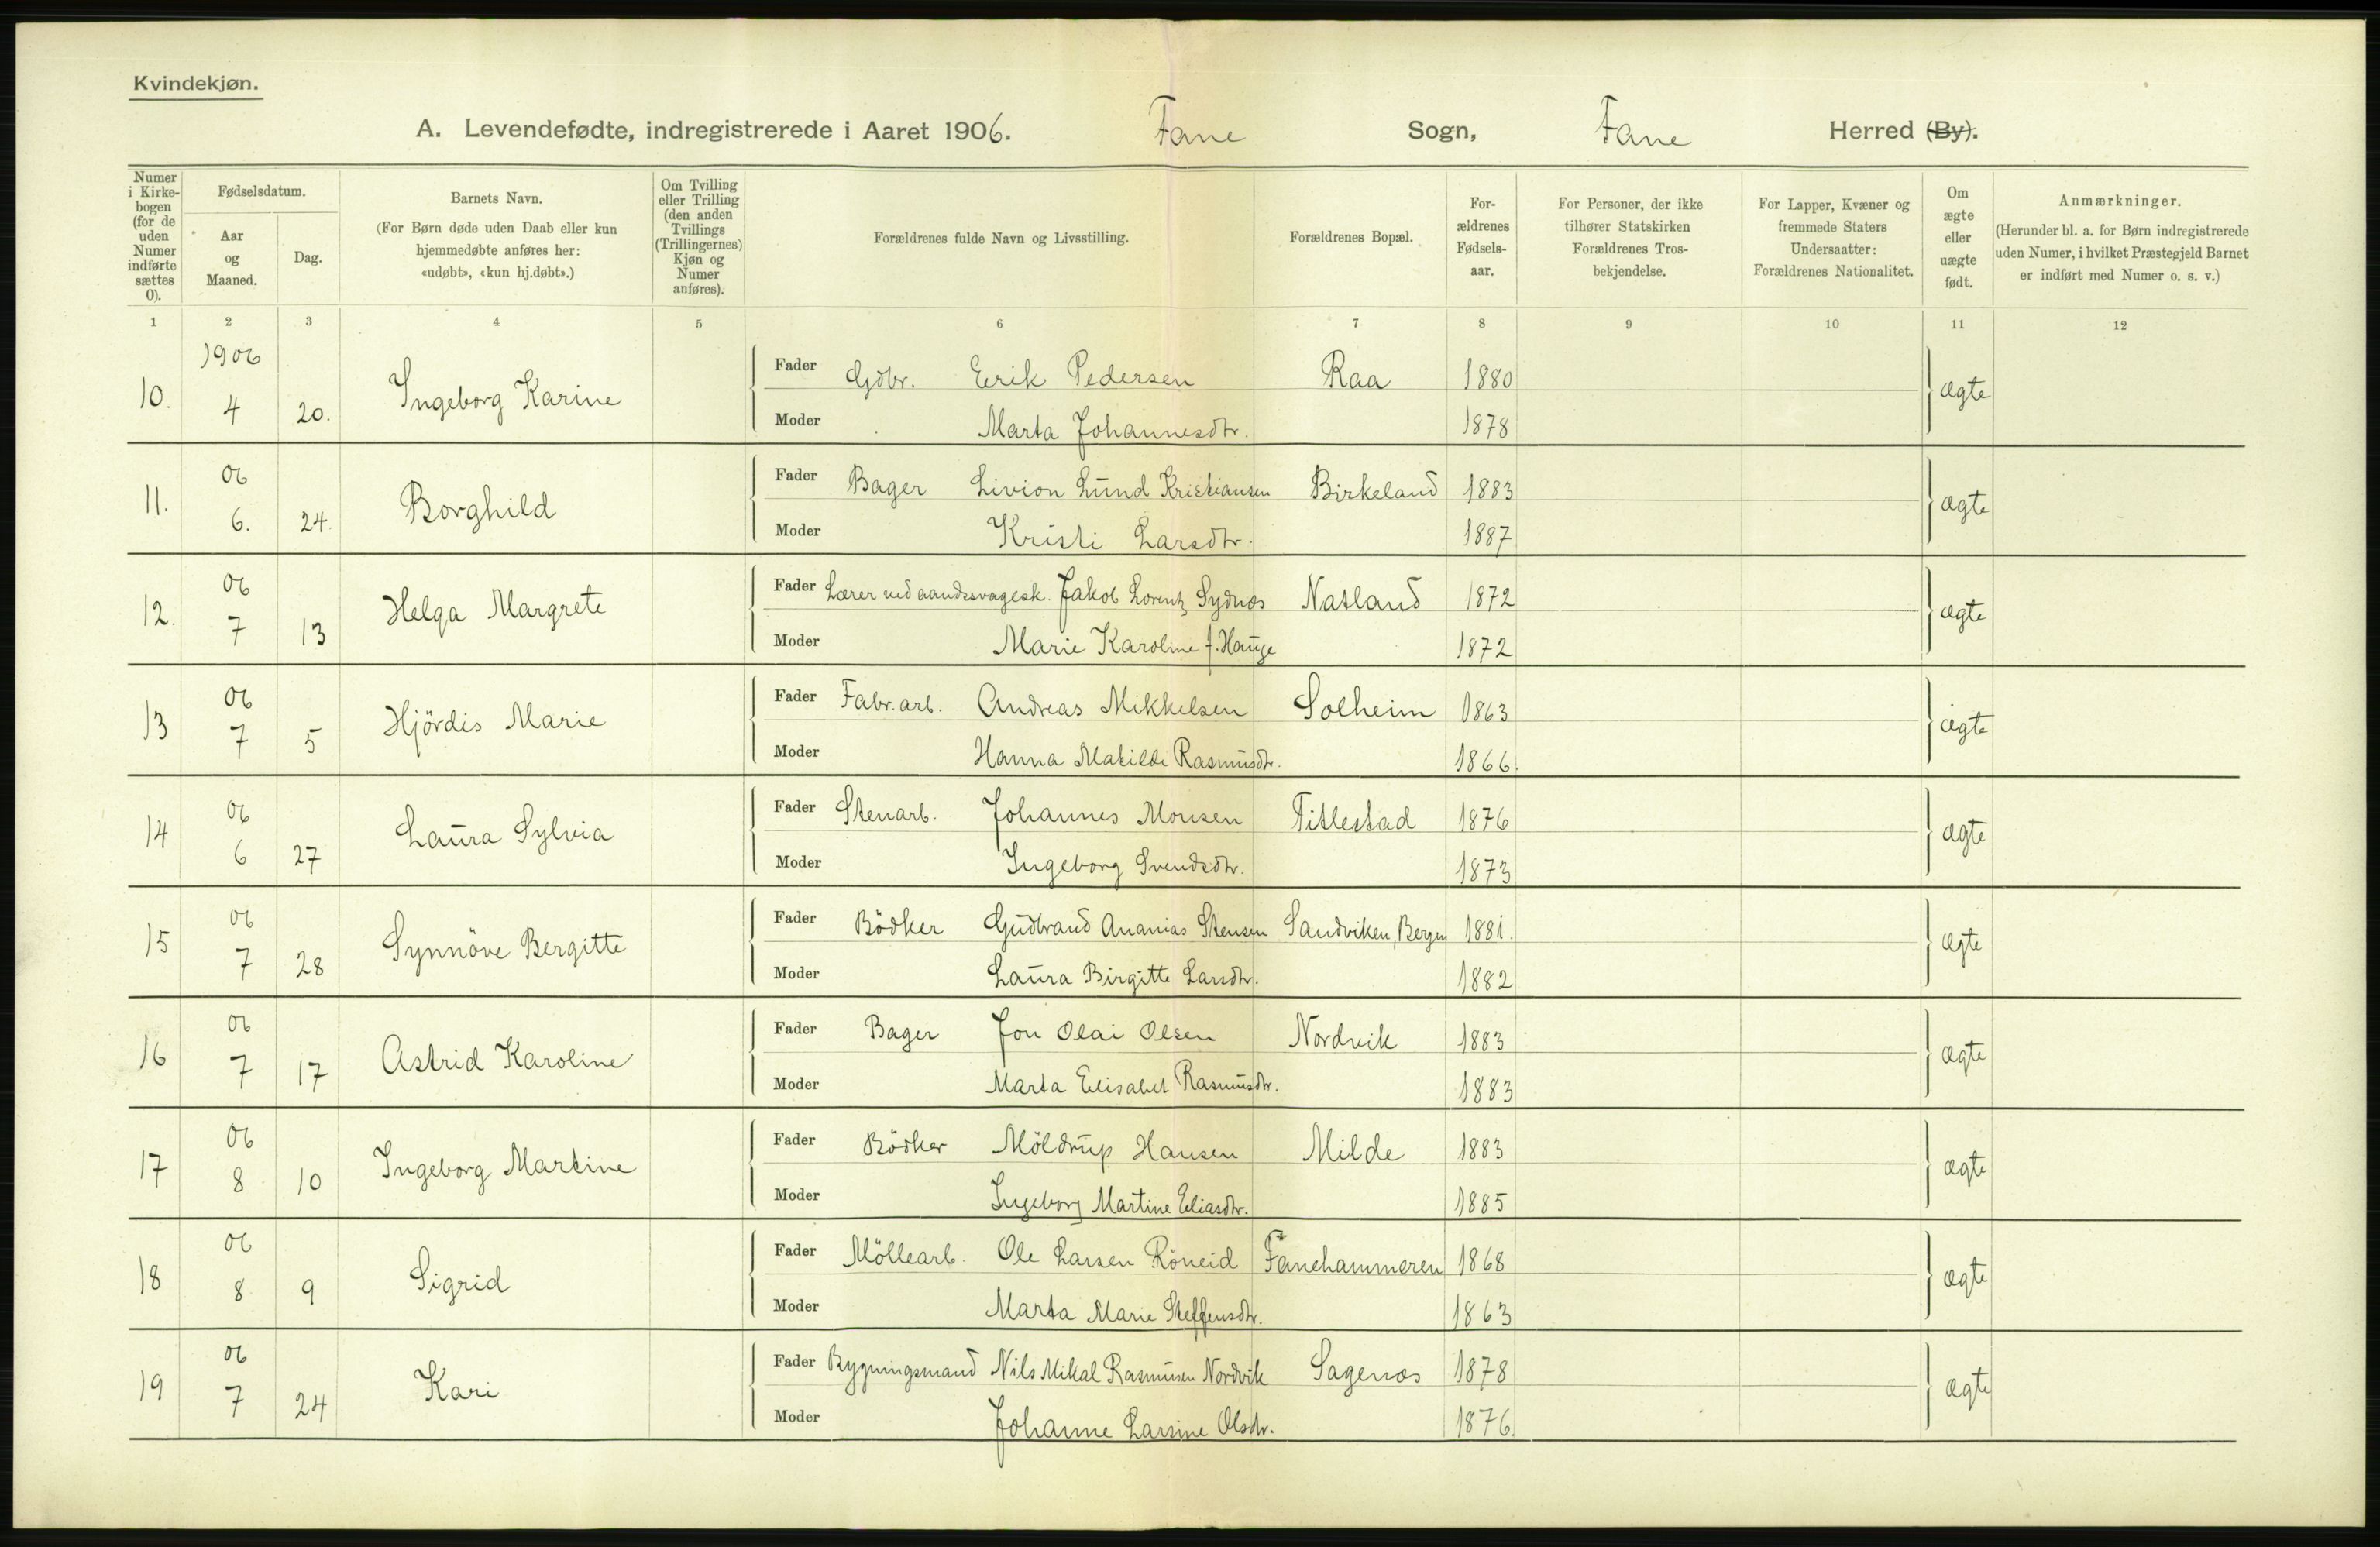 Kvindekjøn.
A. Levendefødte, indregistrerede i Aaret 1906. Fane Sogn, Fane Herred (By).
Numer i Kirkebogen (for de uden Numer indførte sættes 0).
Fødselsdatum.
Aar og Maaned.
Dag.
Barnets Navn.
(For Børn døde uden Daab eller kun hjemmedøbte anføres her: «udøbt», «kun hj.døbt».)
Om Tvilling eller Trilling (den anden Tvillings (Trillingernes) Kjøn og Numer anføres).
Forældrenes fulde Navn og Livsstilling.
Forældrenes Bopæl.
For-ældrenes Fødsels-aar.
For Personer, der ikke tilhører Statskirken Forældrenes Tros-bekjendelse.
For Lapper, Kvæner og fremmede Staters Undersaatter: Forældrenes Nationalitet.
Om ægte eller uægte født.
Anmærkninger.
(Herunder bl. a. for Børn indregistrerede uden Numer, i hvilket Præstegjeld Barnet er indført med Numer o. s. v.)
1 2 3 4 5 6 7 8 9 10 11 12
1906
10. 4 20. Ingeborg Karine Fader Gdbr. Erik Pedersen Raa 1880 ægte
Moder Marta Johannesdtr. 1878
06
11. 6. 24. Borghild Fader Bager Livion Lund Kristiansen Birkeland 1883 ægte
Moder Kristi Larsdtr. 1887
06
12. 7 13 Helga Margrete Fader Lærer ved aandssvagesk. Jakob Lorentz Sydnes Natland 1872 ægte
Moder Marie Karoline f. Hauge 1872
06
13 7 5 Hjördis Marie Fader Fabr.arb. Andreas Mikkelsen Solheim 1863 ægte
Moder Hanna Matilde Rasmusdtr. 1866.
06
14 6 27 Laura Sylvia Fader Stenarb. Johannes Monsen Titlestad 1876 ægte
Moder Ingeborg Svendsdtr. 1873
06
15 7 28 Synnöve Bergitte Fader Bödker Gudbrand Ananias Stensen Sandviken, Bergen 1881. ægte
Moder Laura Birgitte Larsdtr. 1882
06
16 7 17 Astrid Karoline Fader Bager Jon Olai Olsen Nordvik 1883 ægte
Moder Marta Elisabet Rasmusdtr. 1883
06
17 8 10 Ingeborg Martine Fader Bödker Möldrup Hansen Milde 1883 ægte
Moder Ingeborg Martine Eliasdtr. 1885
06
18 8 9 Sigrid Fader Möllearb. Ole Larsen Röneid Fanehammeren 1868 ægte
Moder Marta Marie Steffensdtr. 1863
06
19 7 24 Kari Fader Bygningsmand Nils Mikal Rasmusen Nordvik Sagenes 1878 ægte
Moder Johanne Larsine Olsdtr. 1876.